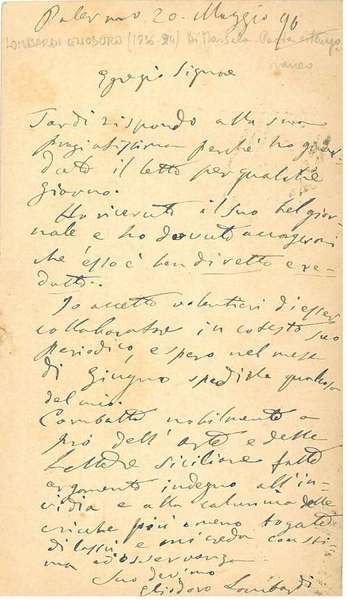 Palermo 20. Maggio 96
LOMBARDI ELIODORO (1834-94) Di Marsala. Poeta e
Egregio Signore
Tardi rispondo alla sua
pregiatissima perché ho guar-
dato il letto per qualche
giorno.
Ho ricevuto il suo bel gior-
nale e ho dovuto accorgermi
che esso è ben diretto e re-
datto.
Io accetto volentieri di essere
collaboratore in cotesto suo
periodico, e spero nel mese
di Giugno spedirle qualcosa
del mio.
Combatta nobilmente a
prò dell'Arte e delle
Lettere Siciliane fatte
argomento indegno all'in-
vidia e alla calunnia delle
cricche più o meno togate
di lassù e mi creda con sti-
ma ed osservanza
Suo devimo
Eliodoro Lombardi